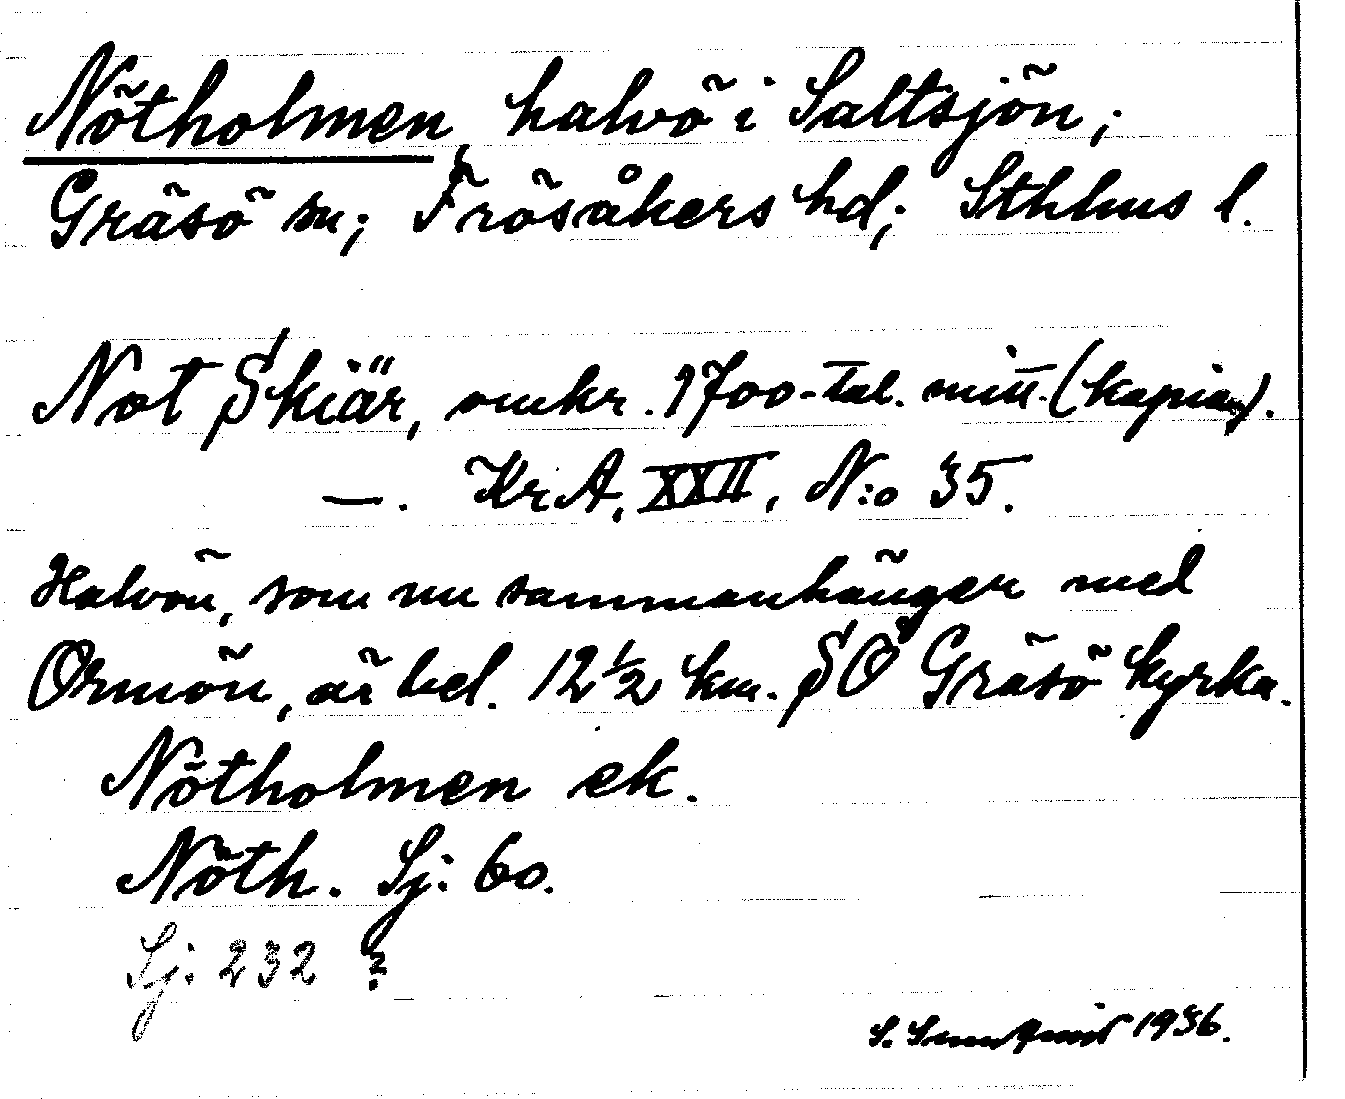 Nötholmen, halvö i Saltsjön;
Gräsö sn; Frösåkers hd; Sthlms l.
Not Skiär, omkr. 1700-tal. mitt. (kopia).
—. KrA, XXII, N:o 35.
Halvön, som nu sammanhänger med
Ormön, är bel. 12½ km. SO Gräsö kyrka.
Nötholmen ek.
Nöth. Sj: 60.
Sj: 232 ?
S. 1936.